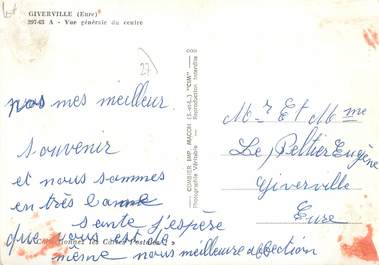 GIVERVILLE (Eure)
297-62 A - Vue générale du centre
27
nos mes meilleur
souvenir
et nous sommes
en très
sante j'espère
que vous est de
même nous meilleure affection
COMBIER IMP. MACON (S.-et-L.) "CIM"
Photographie Véritable - Reproduction Interdite
Mr Et Mme
Le Peltier Eugène
Giverville
Eure